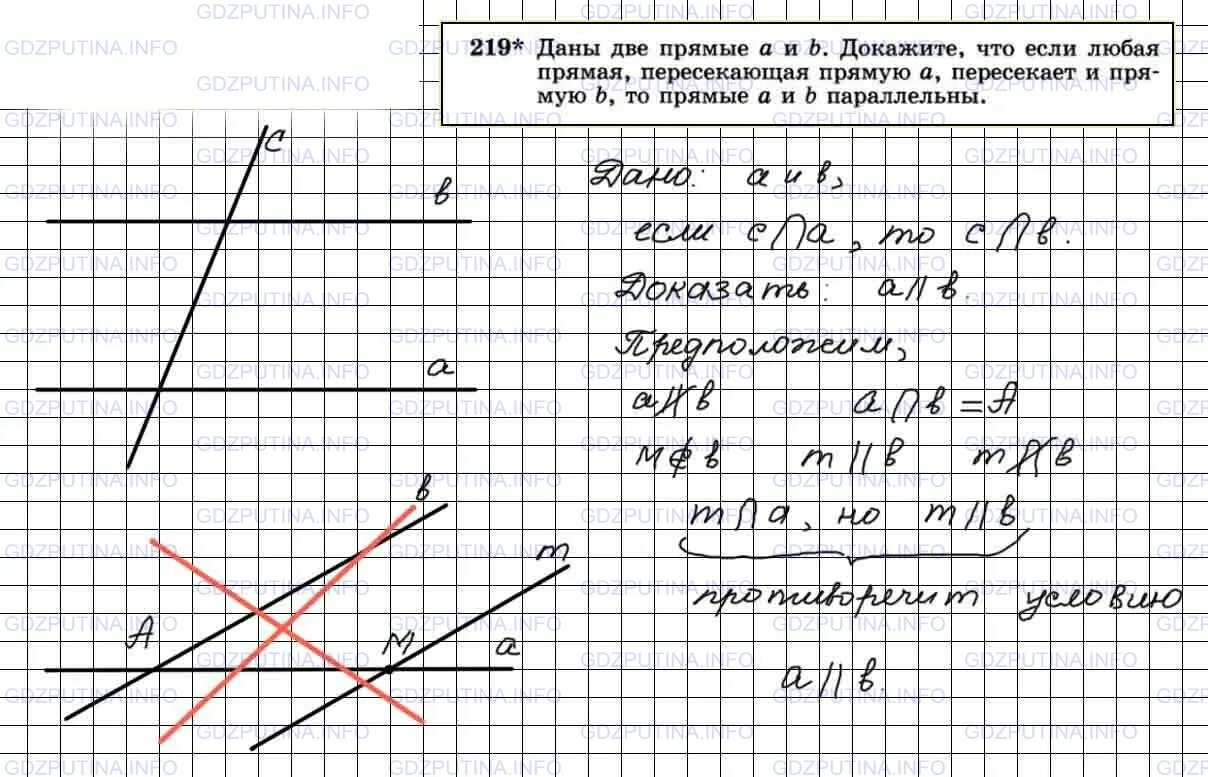 219* Даны две прямые a и b. Докажите, что если любая
прямая, пересекающая прямую a, пересекает и пря-
мую b, то прямые a и b параллельны.
c
в
a
Дано: a и в,
если c⋂a, то c⋂в.
Доказать: a||в.
Предположим,
a∦в a⋂в=A
M∉в m||в m∦в
m⋂a, но m||в
противоречит условию
a||в.
в
m
A
M
a
GDZPUTINA.INFO